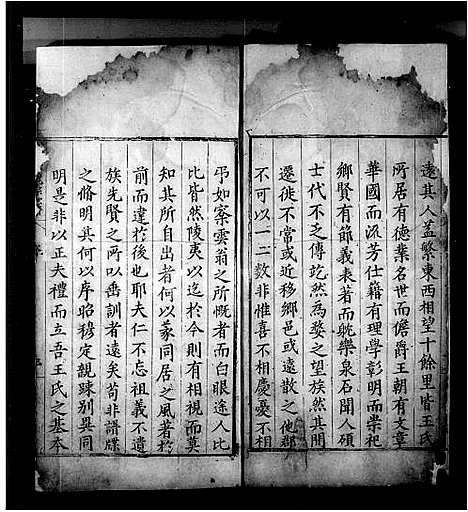 遠其人益繁東西相望十餘里皆王氏
所居有德業名世而儋爵王朝有文章
華國而流芳仕籍有理學彰明而崇祀
鄉賢有節義表著而眺樂泉石聞人碩
士代不乏傳訖然為婺之望族然其間
遷徙不常或近移鄉邑或遠散之他郡
不可以一二數非惟喜不相慶憂不相
弔如案雲翁之所慨者而白眼途人比
比皆然陵夷以迄於今則有相視而莫
知其所自出者何以蒙同居之風著於
前而違於後也耶夫仁不忘祖義不遺
族先賢之所以垂訓者遠矣苟非譜牒
之脩明其何以序昭穆定親踈別異同
明是非以正夫禮而立吾王氏之基本